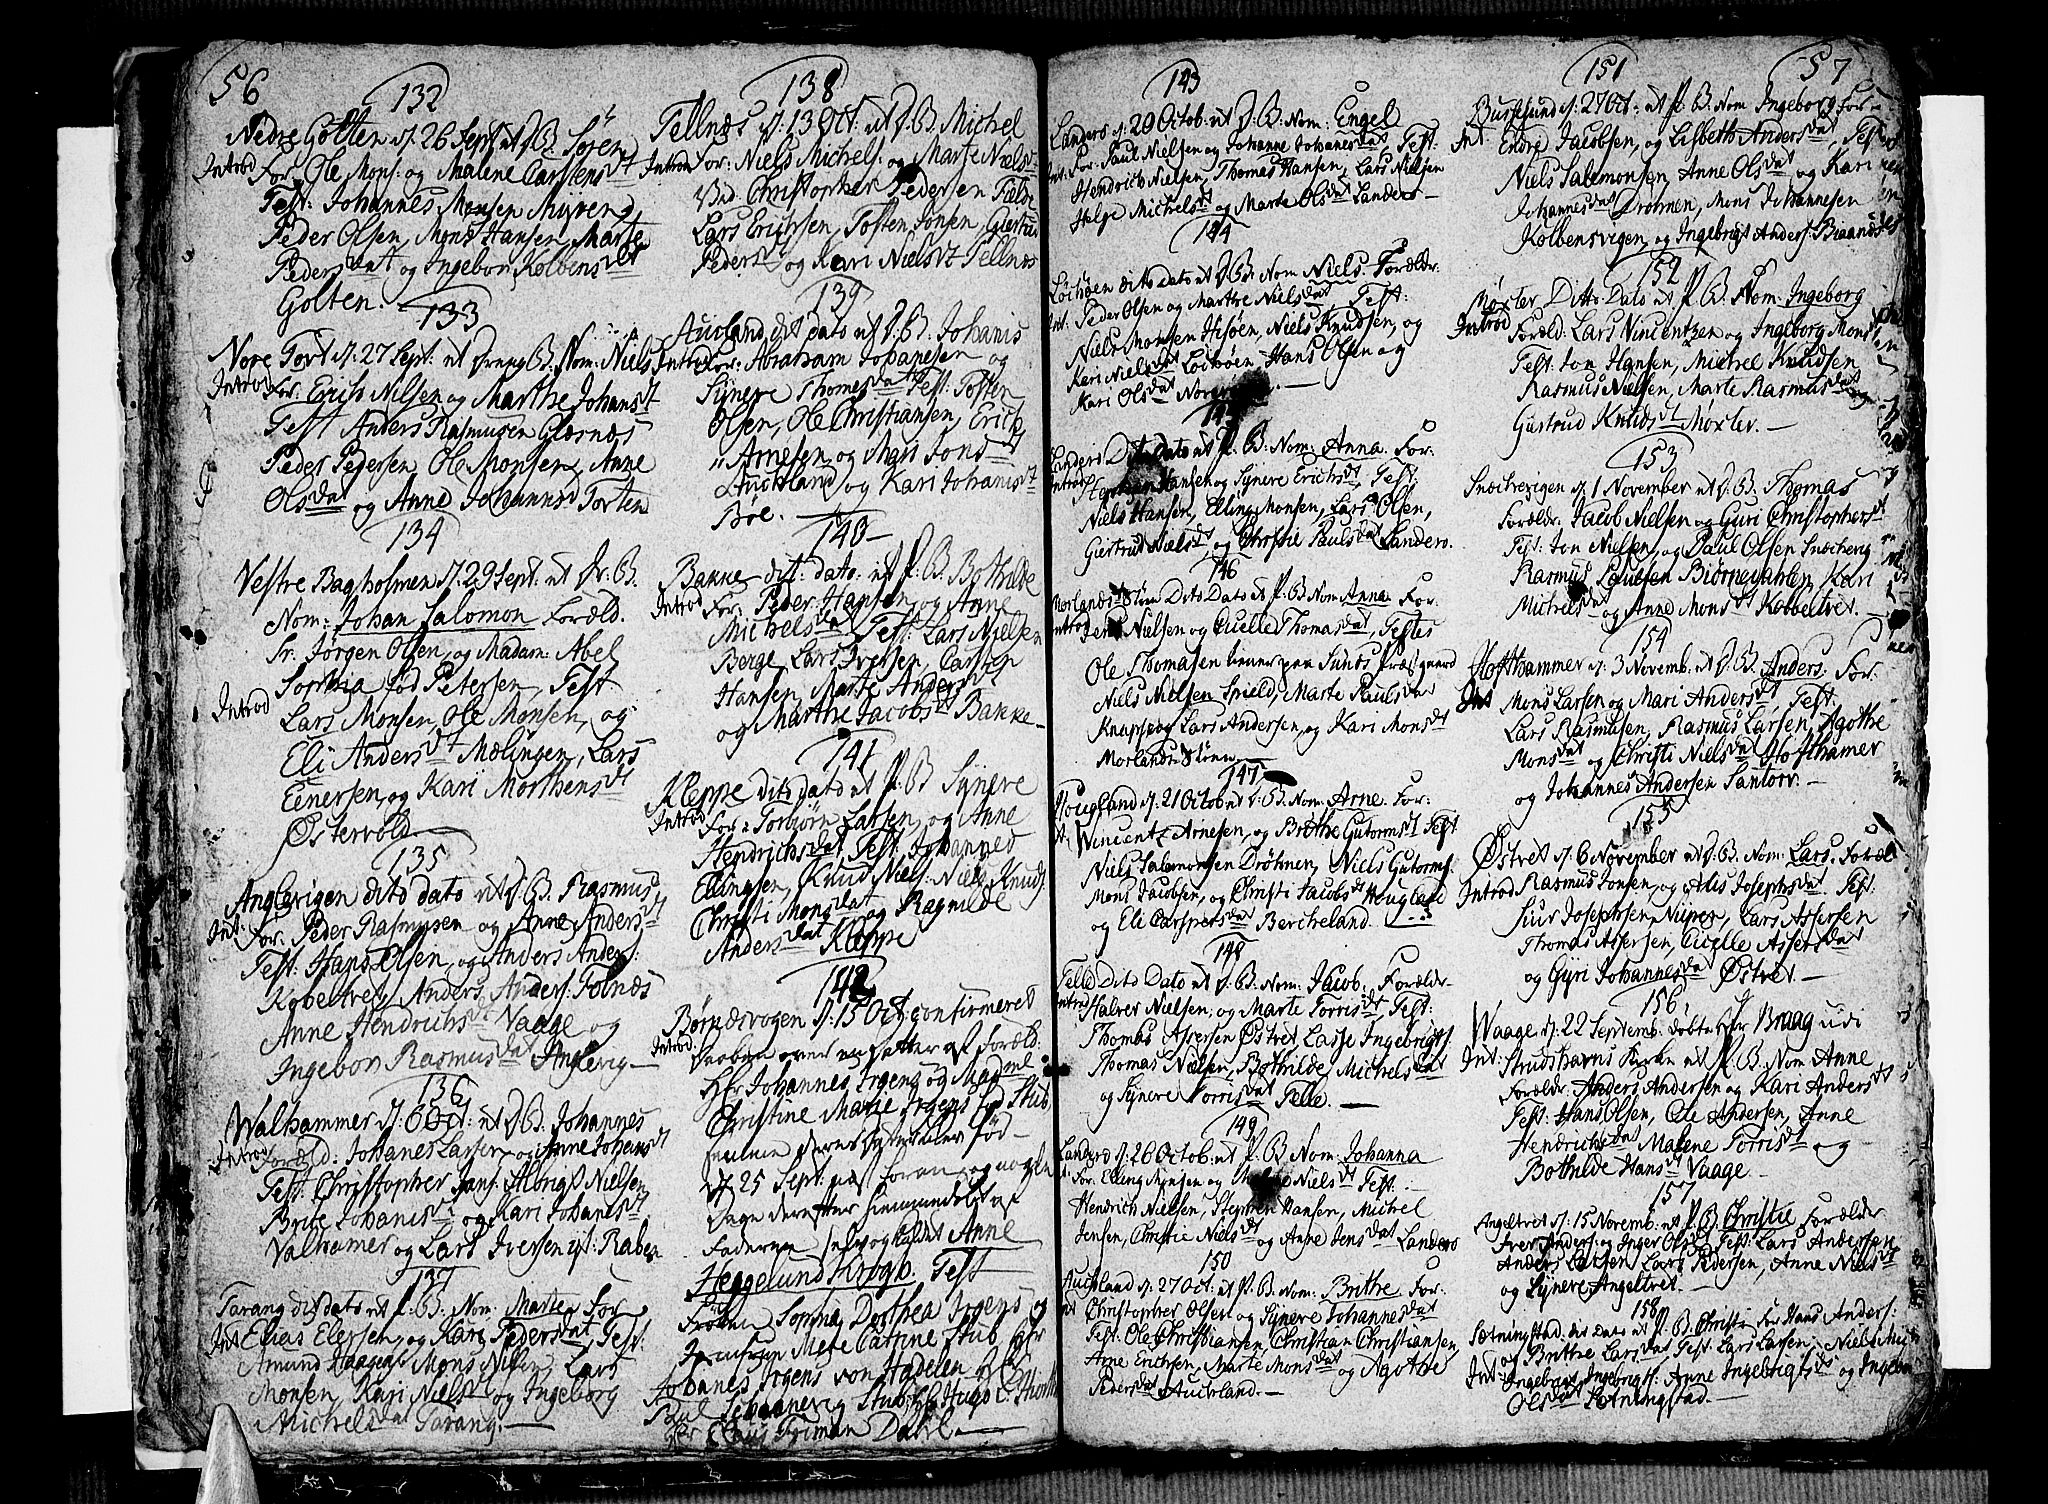 56
132
Nedre Golten d. 26 Sept. ut P. B. Sören
Introd For. Ole Mons: og Malene Carstensdt
Test: Johannes Monsen Myreng
Peder Olsen, Mons Hansen, Marte
Pedersdat og Ingebor Kolbensdt
Golten.
133
Nore Tort d. 27 Sept: ut B. Nom: Niels
Introd For: Erich Nilsen og Marthe Johansdt
Test Anders Rasmusen Glæsnæs
Peder Pedersen, Ole Monsen, Anne
Olsdat og Anne Johannsd Torten
134
Vestre Bagholmen d. 29 Sept. ut P. B.
Nom: Johan Salomon Foræld.
Sr. Jörgen Olsen, og Madam: Abel
Sophia fod Petersen, Test.
Introd
Lars Monsen, Ole Monsen, og
Eli Andersdt Mælingen, Lars
Einersen, og Kari Morthensdt
Østervold
135
Anglevigen dito dato ut P. B. Rasmus
Int: For. Peder Rasmusen og Anne Andersdt
Test: Hans Olsen, og Anders Anders:
Kobeltvet, Anders Anders: Tolnæs
Anne Hendrichsdt Vaage og
Ingebor Rasmusdat Anglevig
136
Walhammer d. 6 Oct: ut P. B. Johannes
Introd Foræld: Johanes Larsen og Anne Johansdt
Test. Christopher Jans: Albrigt Nielsen
Brite Johanisdt og Kari Johanisdt
Valhamer og Lars Iversen Raben
137
Tarang dit dato ut P. B. Nom: Marte For
Int Elias Elersen, og Kari Pedersdat, Test:
Amund Haagens Mons Nilsen, Lars
Monsen, Kari Nielsdt og Ingeborg
Michelsdat Tarang.
138
Tellnæs d. 13 Oct. ut P. B. Michel
Introd For: Niels Michels: og Marte Nielsdt
Christopher Pedersen Fielde
Lars Erichsen, Tosten Jonsen Giertrud
Pedersd og Kari Nielsdt Tellnæs
139
Aucland dit dato ut P. B. Johanis
Introd For: Abraham Johanesen og
Synere Thomesdat Test: Tosten
Olsen, Ole Christiansen, Erick
Arnesen og Mari Jonsdt
Auckland og Kari Johanisdt
Böe.
140
Bakke dit: dato: ut P. B. Bothilde
Introd For: Peder Hansen og Anne
Michelsdat Test: Lars Nielsen
Berge, Lars Iversen, Carsten
Hansen, Marte Andersdt
og Marthe Jacobsdt Bakke
141
Kleppe dito dato ut P. B. Synere
Introd For: Torbiörn Larsen, og Anne
Hendrichsdat Test. Johanned
Ellingsen, Knud Niels: Niels Knuds
Christi Monsdat og Ragnilde
Andersdat Kleppe
142
Börnæsvogen d. 15 Oct: confirmeret
Introd daaben over en datter af Foræld:
Hr. Johannes Irgens og Madme
Christine Marie Irgens fød Stub,
fød
d. 25 Sept: og nogle
Dage derefter hiemmedöbt af
Faderen selv og kaldet Anne
Heggelund Krogh. Test
Fröken Sophia Dorthea Irgens og
Jomfrue Mete Catrine Stub, Hr
Johanes Irgens von Hadelen,
Stub, Hr Hugo
Hr Claus Friman Dahl.
143
Landero d. 20 Octob. ut P. B. Nom: Engel
Int: For. Paul Nielsen og Johanne Johanesdat, Test:
Hendrich Nielsen, Thomas Hansen, Lars Nielsen
Helge Michelsdt og Marte Olsdt Landero
144
Löchöen dito dato ut P. B. Nom Niels. Forældr.
Int. Peder Olsen og Marthe Nielsdat, Test:
Niels Monsen Hisöen, Niels Knudsen, og
Kari Nielsdt Löchöen Hans Olsen og
Kari Olsdat
Landero Dit dato ut P. B. Nom: Anna. For:
Introd Hansen og Synere Erichsdt, Test:
Niels Hansen, Elling Monsen, Lars Olsen,
Giertrud Nielsdt og Christie Paulsdat Landero.
146
Morlands Dito Dato ut P. B. Nom Anna. For:
Introd Jens Nielsen og Cicelle Thomasdat, Testes
Ole Thomasen tiener paa Sunds Præsgaard
Niels Nielsen Spield, Marte Paulsdat
Knapskog Lars Andersen, og Kari Monsdt
Morlands
147
Hougland d. 21 Octob ut P. B. Nom: Arne. For:
Wincentz Arnesen, og Brithe Gutormsdt Test
Niels Salemonsen Dröhnen, Niels Gutorms:
Mons Jacobsen, og Christi Jacobsdt Hougland
og Eli Caspersdat Bercheland.
148
Telle Dito Dato ut P. B. Nom: Jacob. Forældr.
Introd Halver Nielsen, og Marte Torrisdt, Test:
Thomas Assersen Østret Lasse Ingebrigts
Thomas Nielsen, Bothilde Michelsdat
og Synere Torrisdat Telle.
149
Landero d. 26 Octob: ut P. B Nom: Johanna
For: Elling Monsen og Nielsdt Test:
Hendrich Nielsen, Stephen Hansen, Michel
Jensen, Christie Nielsdt og Anne Jensdat Landero
150
Auckland d. 27 Oct: ut P. B. Nom: Brithe. For:
Int Christopher Olsen og Synere Johannesdat
Test: Ole Christiansen, Christian Christiansen,
Arne Erichsen, Marte Monsdat og Agothe
Pedersdat Auckland.
151
57
Bustesund d. 27 Oct: ut P. B. Nom. Ingeborg For:
Int. Endre Jacobsen, og Lisbeth Andersdat, Test:
Niels Salemonsen, Anne Olsdat og Kari
Johannesdat Dröhnen, Mons Johannesen
Kolbensvigen, og Ingebrigt Anders: Biaanæs
152
Møxter Ditto Dato ut P. B. Nom: Ingeborg
Introd Foræld: Lars Vincentzen og Ingeborg Mons
Test: Jon Hansen, Michel Knudsen
Rasmus Nielsen, Marte Rasmusdat og
Giertrud Knudsdt Møxter.
153
Snöchevigen d. 1 November ut P. B. Thomas
Forældr: Jacob Nielsen og Guri Christophersdt
Test: Jon Nielsen, og Paul Olsen Snöchevig
Rasmus Paulsen Biörnedahlen, Kari
Michelsdat og Anne Monsdt Kobbeltvet.
154
Hofthammer d. 3 Novemb. ut P. B. Anders. For:
Int Mons Larsen og Mari Andersdt, Test.
Lars Rasmusen, Rasmus Larsen, Agothe
Monsdat og Christi Nielsdat Hofthamer
og Johannes Andersen Santorv.
155
Østret d. 6 November ut P. B. Nom: Lars. Foræl
Introd Rasmus Jonsen, og Josephsdat Test.
Siur Josephsen Lars Assersen
Thomas Assersen, Cicelle Assersdat
og Gyri Johannesdat Østret.
156
Waage d. 22 Septemb. döbt af Hr Braag udi
Int: Strudshavns Kirke ut P. B. Nom Anne
Forældr: Anders Andersen og Kari Andersdt
Test: Hans Olsen, Ole Andersen, Anne
Hendrichsdat Malene Torrisdt og
Bothilde Hansdt Vaage.
157
Angeltret d. 15 Novemb. ut P. B. Christie Forælder
Iver Anders: og Inger Olsdt, Test: Lars Andersen
Anders Larsen Lars Pedersen, Anne Nielsdt
og Synere Angeltret.
158
Sætningstad: dit dato ut P. B. Christi For Hans Anders:
og Brithe Larsdat Test. Lars Larsen, Niels
Int: Ingebrigt Ingebrigts: Anne Ingebrigtsdt og Ingebor
Olsdat Sætningstad.